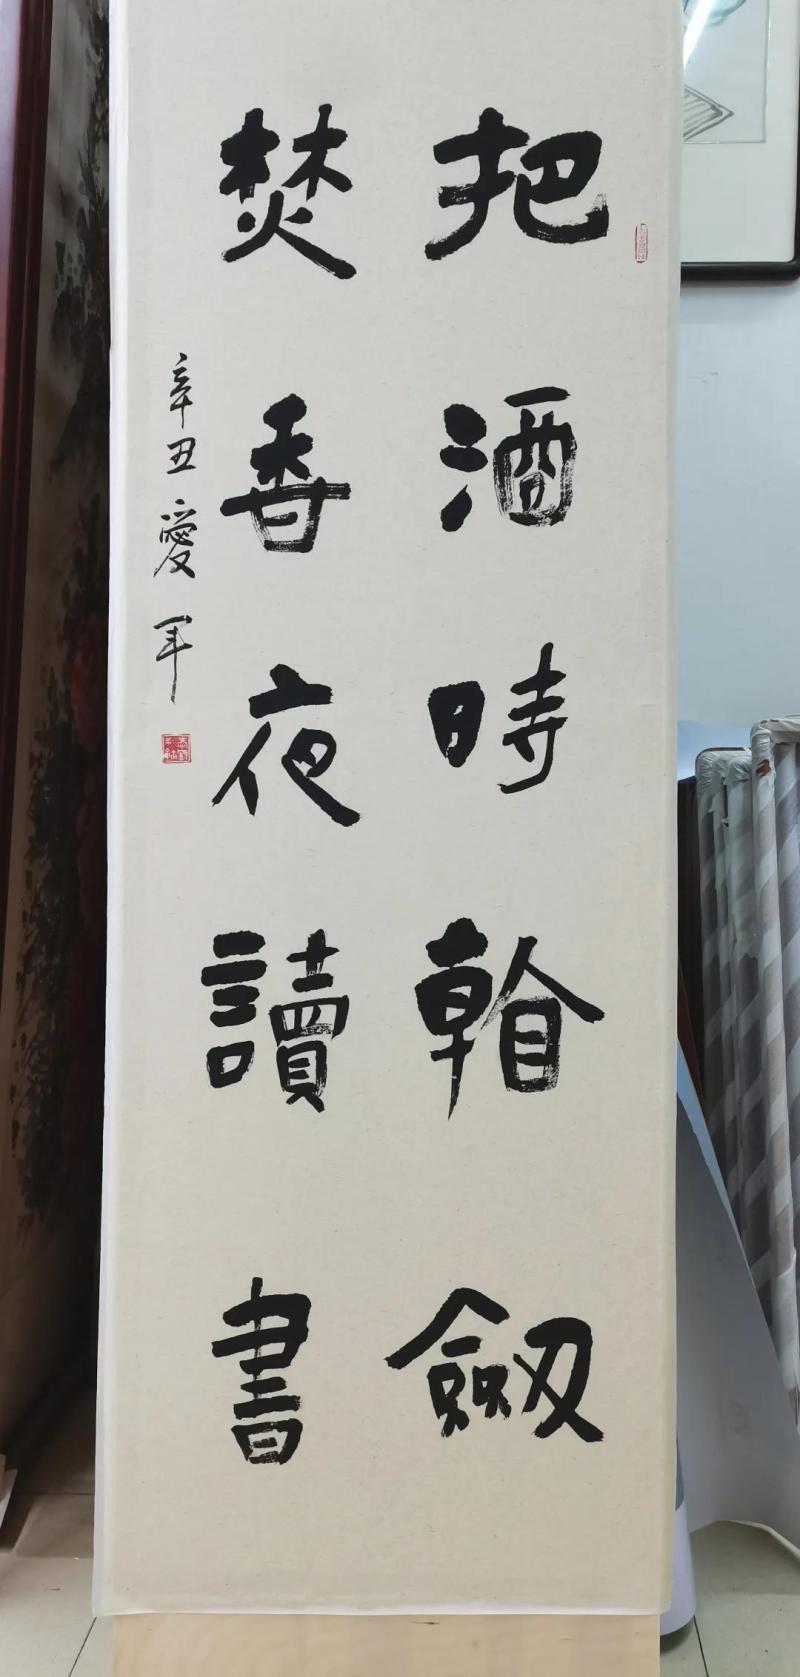 把酒時看劔
焚香夜讀書
辛丑愛軍